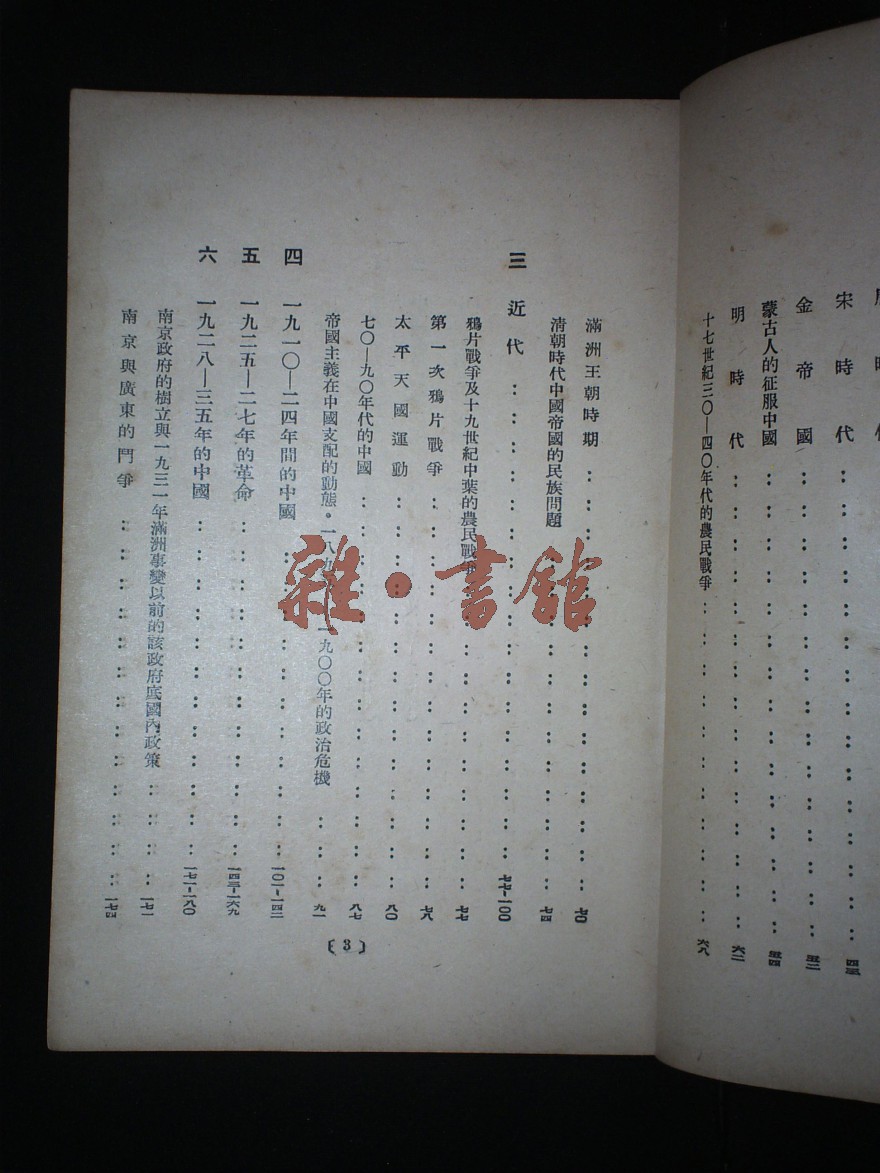 宋時代 四三
金帝國 五二
蒙古人的征服中國 五四
明時代 六二
十七世紀三〇—四〇年代的農民戰爭 六八
滿洲王朝時期 七〇
清朝時代中國帝國的民族問題 七四
三 近代 七七-一〇〇
鴉片戰爭及十九世紀中葉的農民戰爭 七七
第一次鴉片戰爭 七八
太平天國運動 八〇
七〇—九〇年代的中國 八七
帝國主義在中國支配的動態・一八九 一九〇〇年的政治危機 九一
四 一九一〇—二四年間的中國 一〇一-一四二
五 一九二五—二七年的革命 一四三-一六九
六 一九二八—三五年的中國 一七一-一八〇
南京政府的樹立與一九三一年滿洲事變以前的該政府底國內政策 一七一
南京與廣東的鬥爭 一七四
〔3〕
雜・書館